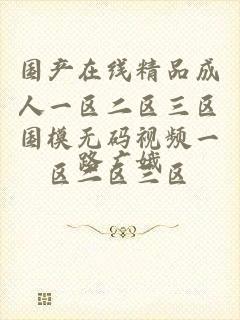 国产在线精品成
人一区二区三区
国模无码视频一
区二区三区
路广娥